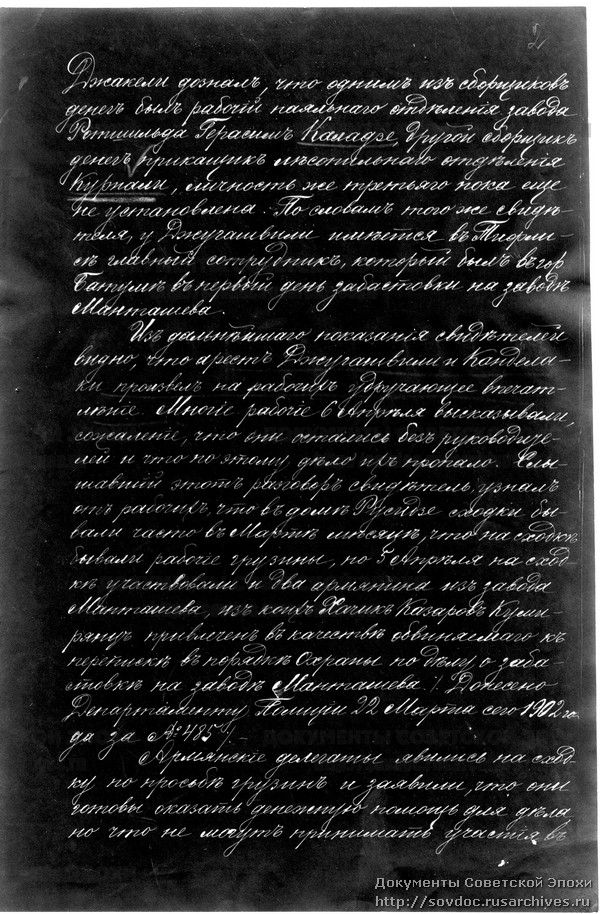 2
Джакели дозналъ, что однимъ изъ сборщиковъ
денегъ былъ рабочій паяльнаго отдѣленія завода
Ротшильда Герасимъ Каладзе, другой сборщикъ
денегъ прикащикъ лѣсопильнаго отдѣленія
Курпали, личность же третьяго пока еще
не установлена. По словамъ того же свидѣ-
теля, у Джугашвили имѣется въ Тифли-
сѣ главный сотрудникъ, который былъ въ гор.
Батумѣ въ первый день забастовки на заводѣ
Манташева.
Изъ дальнѣйшаго показанія свидѣтелей
видно, что арестъ Джугашвили и Кандела-
ки произвелъ на рабочихъ удручающее впечат-
лѣніе. Многіе рабочіе 6 Апрѣля высказывали,
сожалѣніе, что они остались безъ руководите-
лей и что по этому дѣло ихъ пропало. Слы-
шавшій этотъ разговоръ свидѣтель, узналъ
отъ рабочихъ, что въ домѣ Русидзе сходки бы-
вали часто въ Мартѣ мѣсяцѣ, что на сходкѣ
бывали рабочіе грузины, но 5 Апрѣля на сход-
кѣ участвовали и два армянина изъ завода
Манташева, изъ коихъ Хачикъ Казаровъ Куми-
рянцъ привлеченъ въ качествѣ обвиняемаго къ
перепискѣ въ порядкѣ Охраны по дѣлу о заба-
стовкѣ на заводѣ Манташева /. Донесено
Департаменту Полиціи 22 Марта сего 1902 го-
да за № 485/.-
Армянскіе делегаты явились на сход-
ку по просьбѣ грузинъ и заявили, что они
готовы оказать денежную помощь для дѣла
но что не могутъ принимать участія въ
Документы Советской Эпохи
http://sovdoc.rusarchives.ru